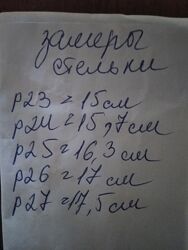 замеры
стельки
р23 = 15см
р24 = 15,7см
р25 = 16,3см
р26 = 17 см
р27 = 17,5см